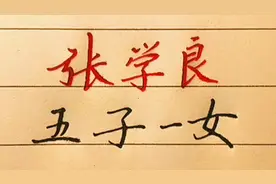 张学良
五子一女